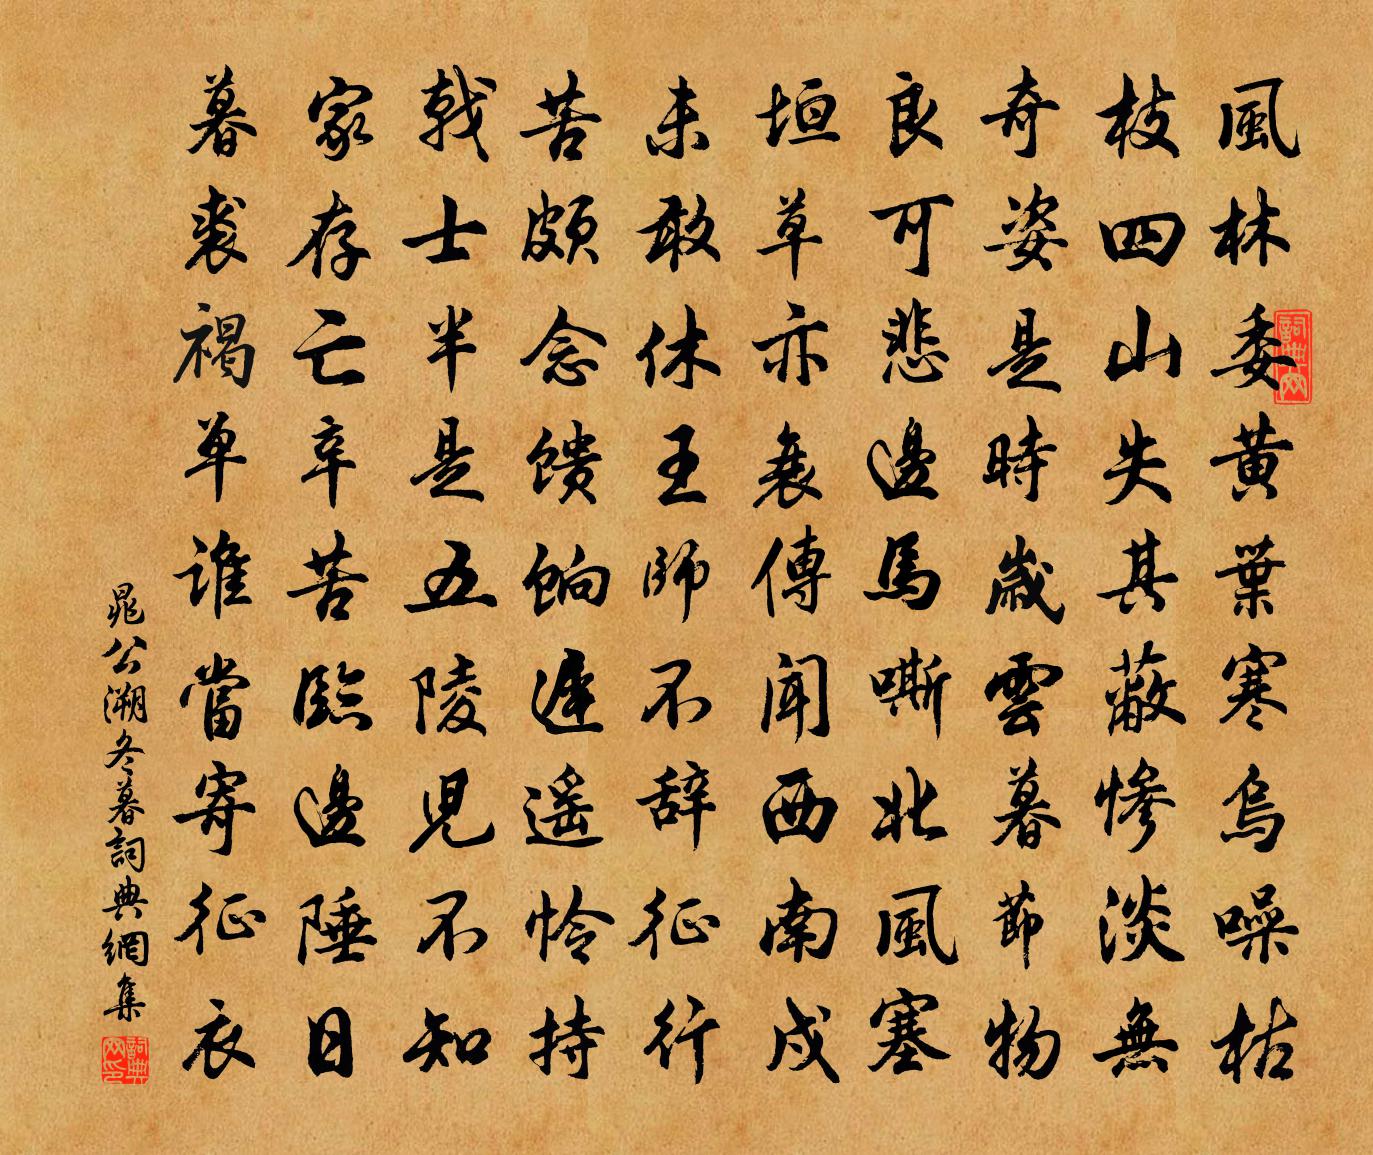 風林委黃葉寒烏噪枯
枝四山失其蔽慘淡無
奇姿是時歲雲暮節物
良可悲邊馬嘶北風塞
垣草亦衰傳聞西南戍
未敢休王師不辭征行
苦頗念饋餉遲遥憐持
戟士半是五陵兒不知
家存亡辛苦臨邊陲日
暮裘褐單誰當寄征衣
晁公溯冬暮詞典網集
詞典网
詞典网印